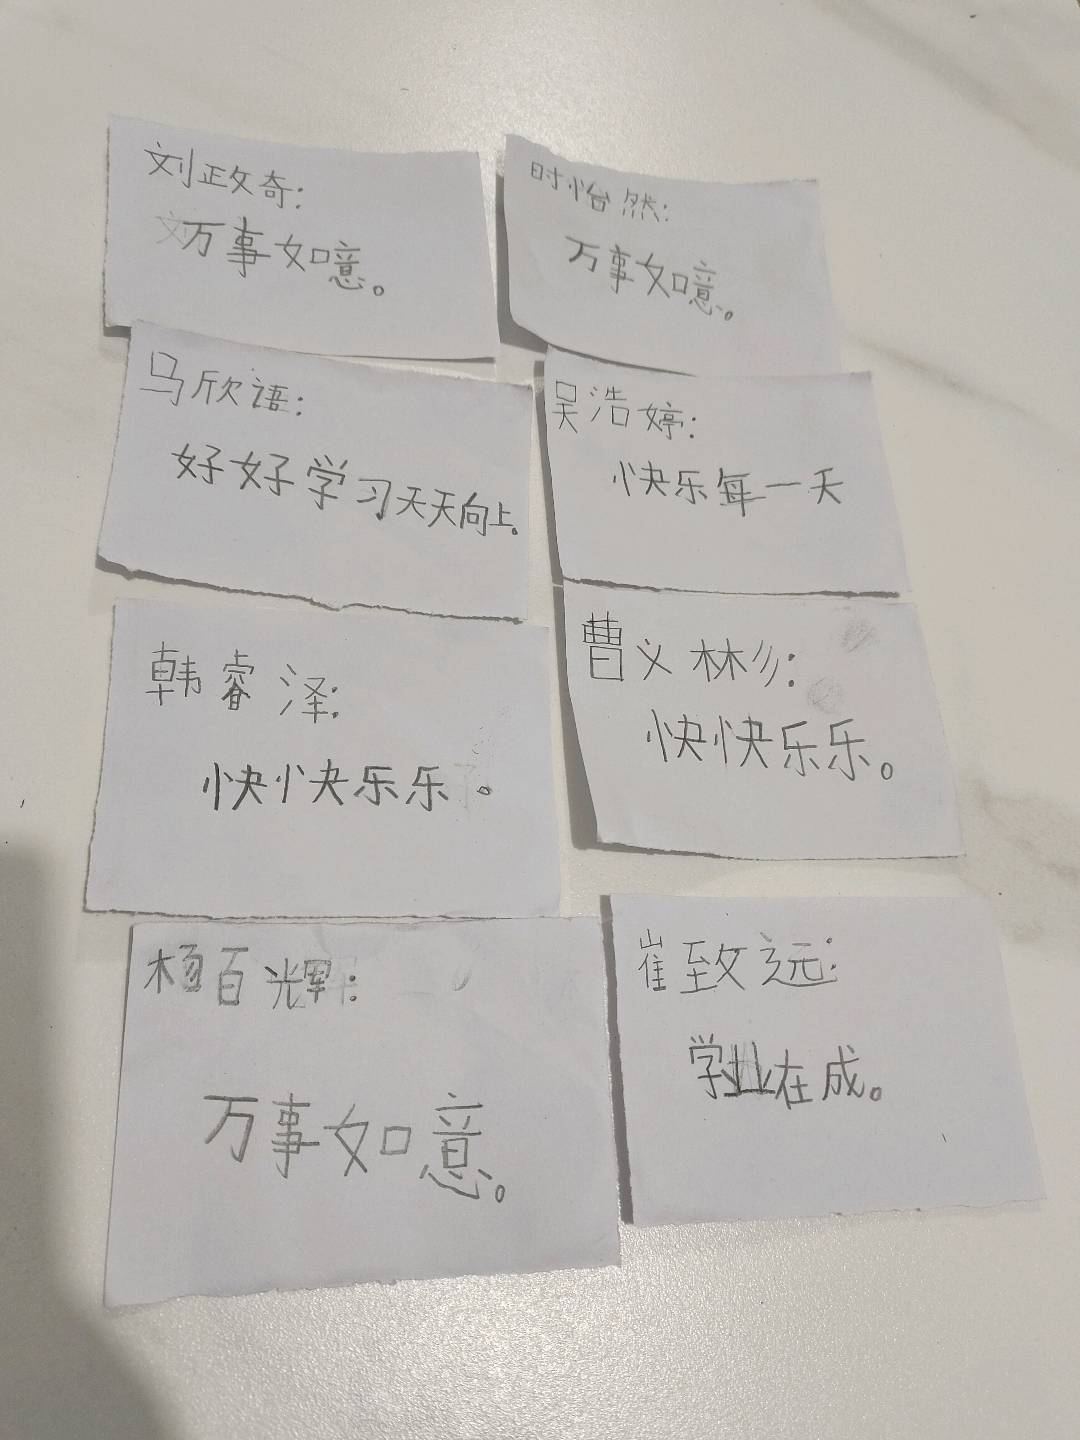 刘政奇：
万事如意。
时怡然：
万事如意。
马欣语：
好好学习天天向上。
吴浩婷：
快乐每一天
韩睿泽：
快快乐乐。
曹义彬：
快快乐乐。
杨百辉：
万事如意。
崔致远：
学业在成。